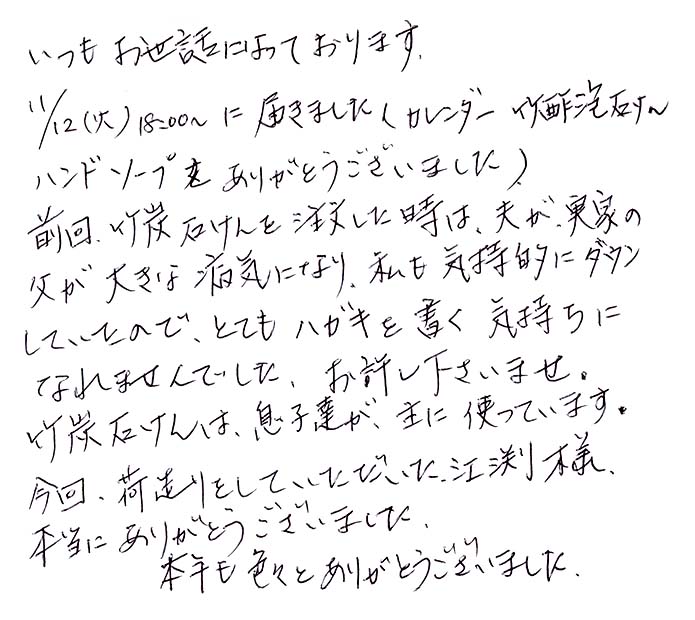 いつもお世話になっております。
11/12(火)18:00〜に届きました(カレンダー 竹酢泡石けん
ハンドソープを ありがとうございました)
前回、竹炭石けんを注文した時は、夫が、実家の
父が大きな病気になり、私も気持的にダウン
していたので、とてもハガキを書く気持ちに
なれませんでした、お許し下さいませ。
竹炭石けんは、息子達が、主に使っています。
今回、荷造りをしていただいた、江渕様、
本当にありがとうございました、
本年も色々とありがとうございました、